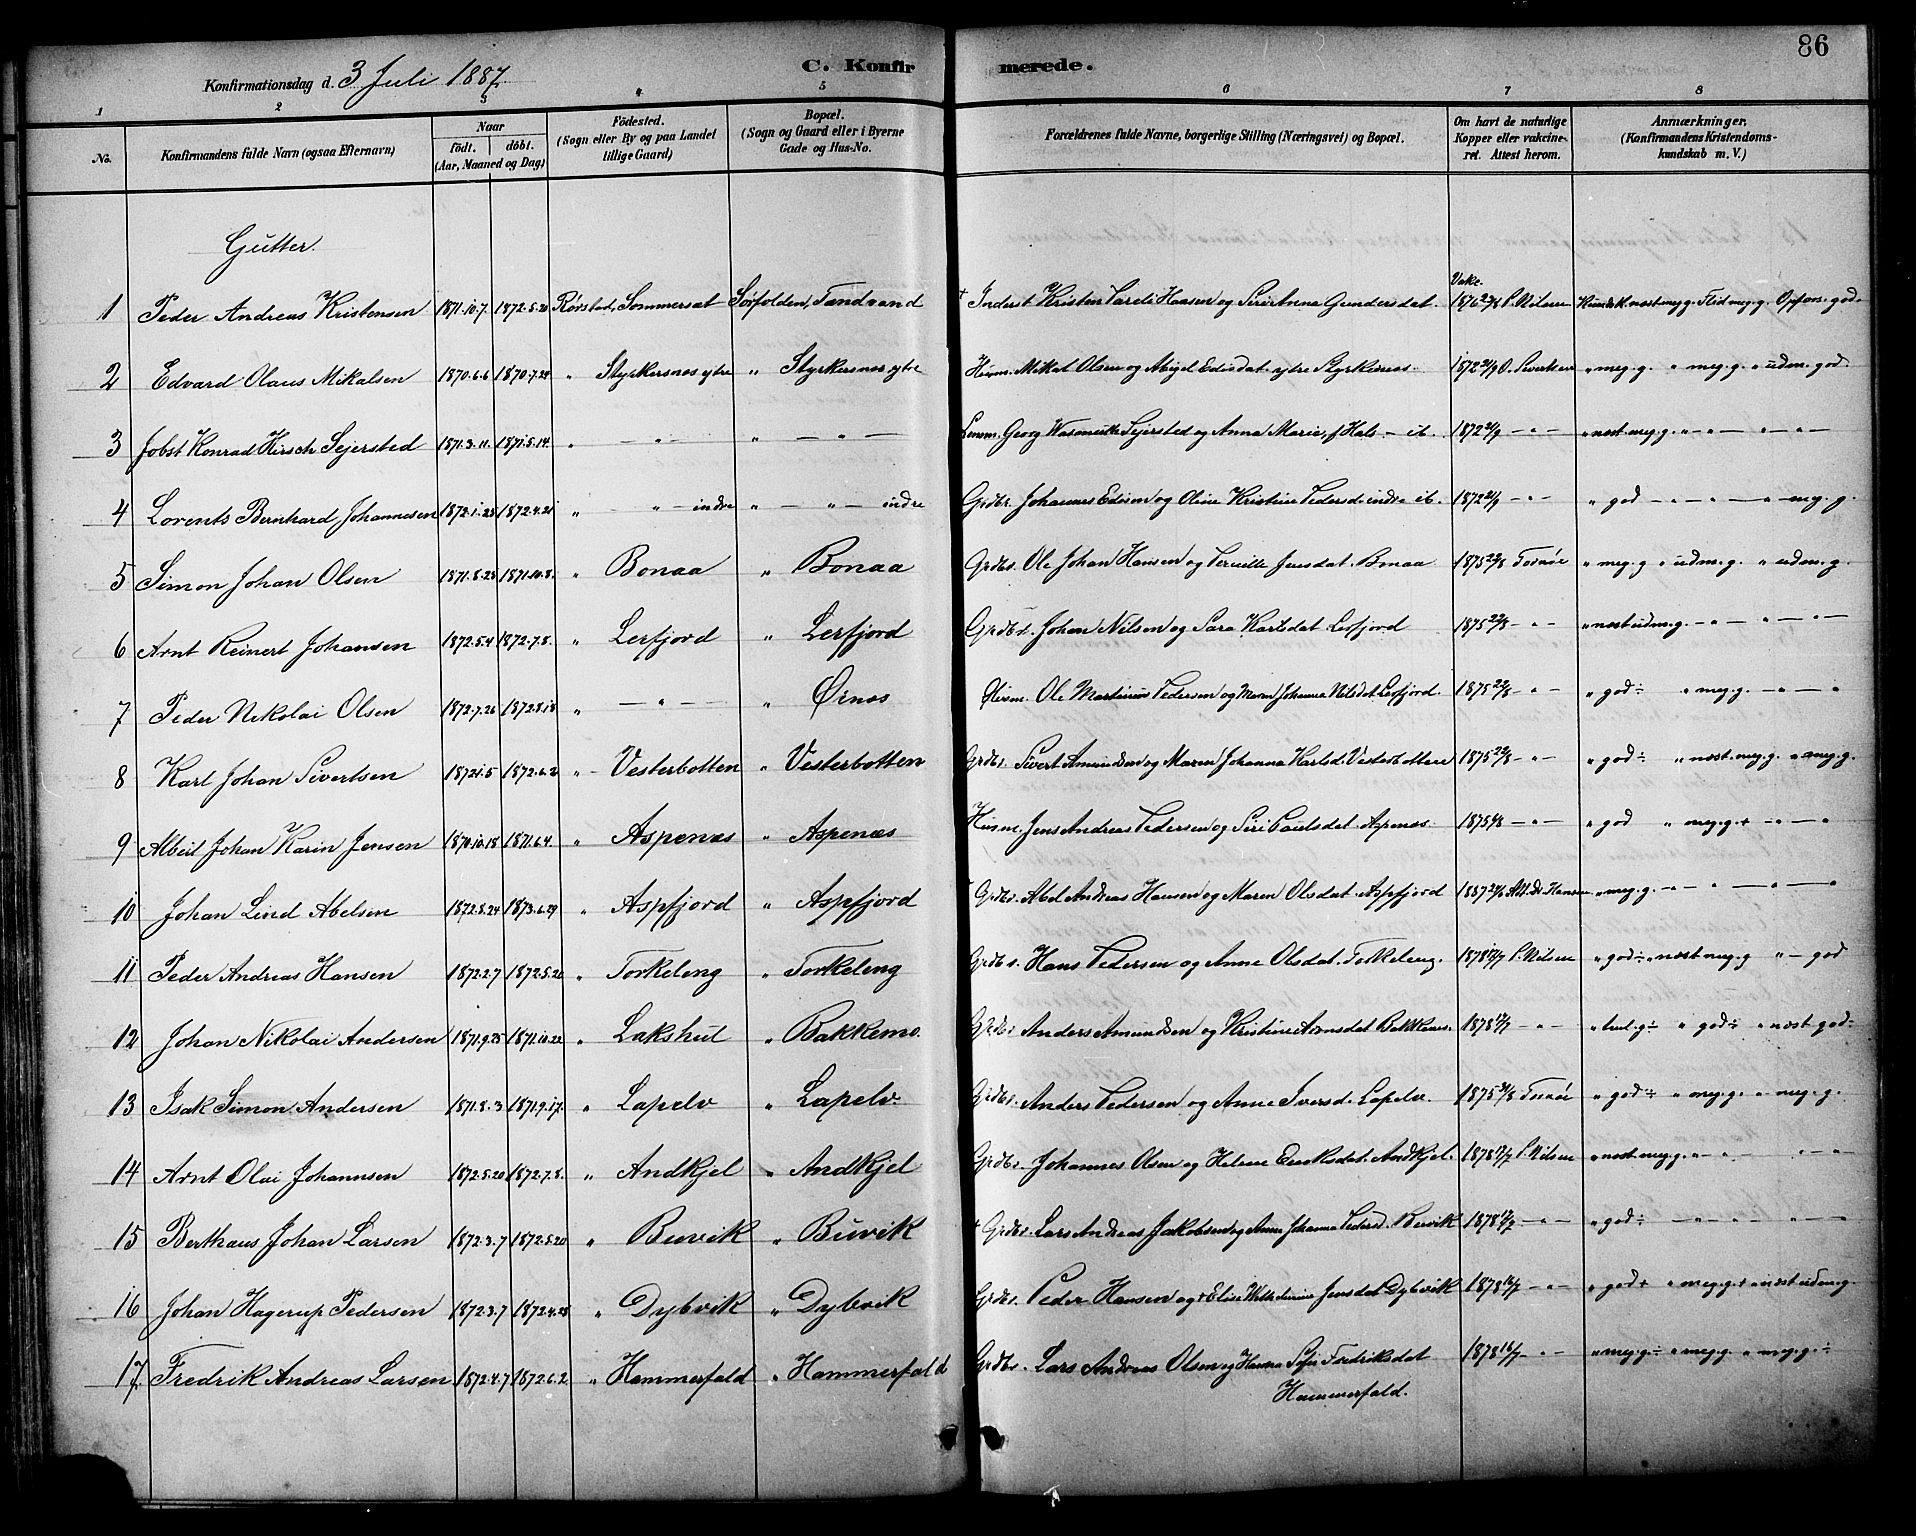 86
Konfirmationsdag d. 3 Juli 1887. C. Konfirmerede.
1 2 3 4 5 6 7 8
No. Konfirmandens fulde Navn (ogsaa Efternavn) Naar födt. döbt. (Aar, Maaned og Dag) Födested. (Sogn eller By og paa Landet tillige Gaard) Bopæl. (Sogn og Gaard eller i Byerne Gade og Hus-No. Forældrenes fulde Navne, borgerlige Stilling (Næringsvei) og Bopæl. Om havt de naturlige Kopper eller vakcineret. Attest herom. Anmærkninger. (Konfirmandens Kristendomskundskab m. V.)
Gutter.
1 Peder Andreas Kristensen 1871.10.7. 1872.5.20 Rørstad, Sommerset Sørfolden, Tandvand + Inderst Kristen Hansen og Anna Gundersdat. Vakc. 1876 P. Nilsen Kundsk. næst meg. g. Flid meg. g. Opførs. god.
2 Edvard Olaus Mikalsen 1870.6.6 1870.7.24 " Styrkersnes ytre " Styrkersnes ytre Husm. Mikal Olsen og Abigel Edisdat. ytre Styrkesnes. 1872 21/9 O. Sivertsen " meg. g. " meg. g. " udm. god.
3 Jobst Konrad Hirsch Sejersted 1871.3.11. 1871.5.14. " — " — " — " — Georg Wasmuth Sejersted og Anna Marie f. Hals — ib. 1872 21/9 — " — " næst meg. g. — " — " — " —
4 Lorents Bernhard Johannesen 1872.1.23 1872.4.21 " — " — indre " — " — indre Grdbr. Johannes Edisen og Oline Kristine Pedersd. indre ib. 1872 21/9 — " — " god — " — " — " meg. g.
5 Simon Johan Olsen 1871.8.23 1871.10.8. " Bonaa " Bonaa Grdbr. Ole Johan Hansen og Pernille Jensdat. Bonaa 1875 22/8 Tornøe " meg. g " udm. g. " udm. g.
6 Arnt Reinert Johansen 1872.5.4 1872.7.8. " Lerfjord " Lerfjord Grdbr. Johan Nilsen og Sara Karlsdat. Lerfjord 1875 22/8 — " — " næst udm. g. — " — " — " —
7 Peder Nikolai Olsen 1872.7.26 1872.8.18 " — " — " Ørnes Husm. Ole Martinus Pedersen og Maren Johanna Nilsdat. Lerfjord. 1875 22/8 — " — " god ÷ " meg. g. — " — "
8 Karl Johan Sivertsen 1872.1.5 1872.6.2 " Vesterbotten " Vesterbotten Grdbr. Sivert Amundsen og Maren Johanna Karlsd. Vesterbotten 1875 22/8 — " — " god ÷ " næst meg. g. " meg. g.
9 Albert Johan Karin Jensen 1870.10.18 1871.6.4 " Aspenæs " Aspenæs Husm. Jens Andreas Pedersen og Siri Paulsdat. Aspenæs. 1875 — " — " god " meg. g. + — " — "
10 Johan Lind Abelsen 1872.8.24 1873.6.29 " Aspfjord " Aspfjord Grdbr. Abel Andreas Hansen og Maren Olsdat. Aspfjord 1887 Hansen " meg. g. — " — " — " — "
11 Peder Andreas Hansen 1872.2.7 1872.5.20 " Torkeleng " Torkeleng Grdbr. Hans Pedersen og Anne Olsdat. Torkeleng. 1878 17/7 P. Nilsen " god ÷ " næst meg. g " — god
12 Johan Nikolai Andersen 1871.9.25 1871.10.22 " Lakshul " Bakkemo. Grdbr. Anders Amundsen og Kristine Arnsdat. Bakkemo. 1878 17/7 — " — " tml. g ÷ " god ÷ " næst god ÷
13 Isak Simon Andersen 1871.8.3 1871.9.17. " Lapelv " Lapelv. Grdbr. Anders Pedersen og Anne Iversd. Lapelv. 1875 31/8 Tornøe " god ÷ " meg. g. " meg. g.
14 Arnt Olai Johannsen 1872.5.20 1872.7.8. " Andkjel " Andkjel Grdbr. Johannes Olsen og Helene Eriksdat. Andkjel. 1878 17/7 P. Nilsen " næst meg. g. " — " — " — " —
15 Berthaus Johan Larsen 1872.3.7 1872.5.20 " Buvik " Buvik + Grdbr. Lars Andreas Jakobsen og Anne Johanna Pedersd. Buvik 1878 17/7 — " — " god ÷ — " — " — " — "
16 Johan Hagerup Pedersen 1872.3.7 1872.4.28 " Dybvik " Dybvik Grdbr. Peder Hansen og + Elise Wilhelmine Jensdat. Dybvik 1878 16/7 — " — " god + " meg. g. + " næst udm. g.
17. Fredrik Andreas Larsen 1872.4.7 1872.6.2 " Hammerfald " Hammerfald Grdbr. Lars Andreas Olsen og Hanna Sofie Fredriksdat Hammerfald. 1878 16/7 — " — " meg. g. ÷ " meg. g. " meg. g. ÷